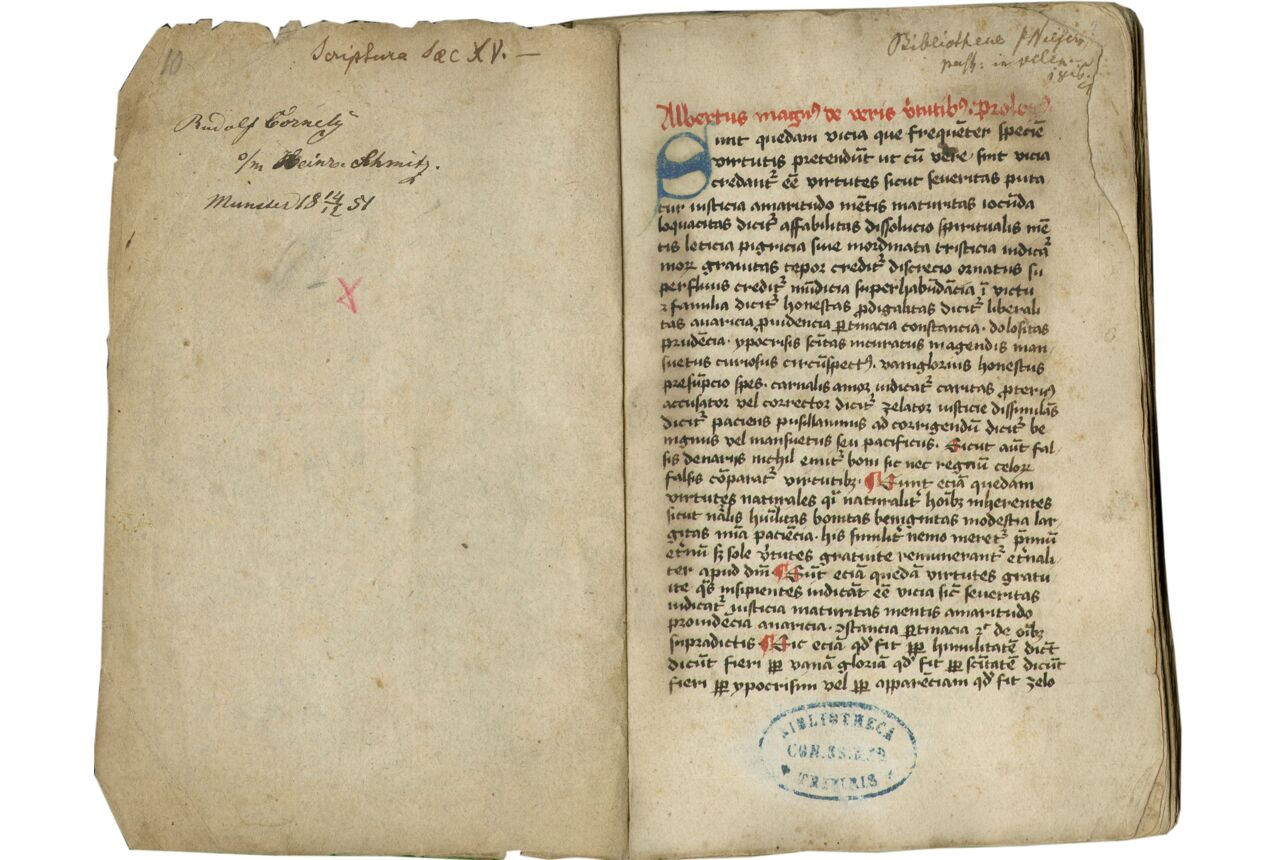 10
Scriptura Sæc XV. —
Rudolf Cornely
v/m Heinr. Schmitz.
Münster 18 14/12 51
X
Bibliothece
1816.
Albertus magnꝰ de veris v̄tutibꝰ. prolo
Sunt quedam vicia que frequēter speciē
virtutis pretendūt ut cū vere sint vicia
credantᷣ eē virtutes sicut seueritas puta
tur iusticia amaritudo mētis maturitas iocūda
loquacitas dicitᷣ affabilitas dissolucio spiritualis mē
tis leticia pigricia siue inordinata tristicia iudicā
tur grauitas tepor creditᷣ discrecio ornatus su
perfluus creditᷣ mūdicia superhabūdācia ī victu
⁊ familia dicitᷣ honestas ꝓdigalitas dicitᷣ liberali
tas auaricia ꝓuidencia ꝑtinacia constancia. dolositas
prudēcia. ypocrisis scītas incuratus in agendis man
suetus curiosus circūspectꝰ. vainglorius honestus
presūpcio spes. carnalis amor iudicatᷣ caritas ꝓteruꝰ
accusator vel corrector dicitᷣ zelator iusticie dissimilās
dicitᷣ paciens pusillanimus ad corrigendū dicitᷣ be
nignus vel mansuetus seu pacificus. Sicut aūt fal
sis denarijs nichil emitᷣ boni sic nec regnū celoꝝ
falsis cōparatᷣ virtutibꝫ. ¶ Sunt eciā quedam
virtutes naturales q̄ naturalitᷣ hoībꝫ inherentes
sicut nālis hūilitas bonitas benignitas modestia lar
gitas mīa paciēcia. his similitᷣ nemo meretᷣ p̄miū
etᷣnū sꝫ sole v̄tutes gratuite remunerantᷣ etᷣnali
ter apud dm̄ ¶ Sūt eciā quedā virtutes gratu
ite q̄s insipientes iudicāt eē vicia sic̄ seueritas
iudicatᷣ iusticia maturitas mentis amaritudo
prouidēcia auaricia. ꝯstancia ꝑtinacia ⁊c̄ de oībꝫ
supradictis ¶ Sic eciā qd̓ fit ꝓpᷣ humilitatē dicūt
dicūt fieri ꝓpᷣ vanā gloriā qd̓ fit ꝓpᷣ scītatē dicūt
fieri ꝓpᷣ ypocrisim vel ꝓpᷣ apparēciam qd̓ fit zelo
BIBLIOTHECA
TREVIRIS